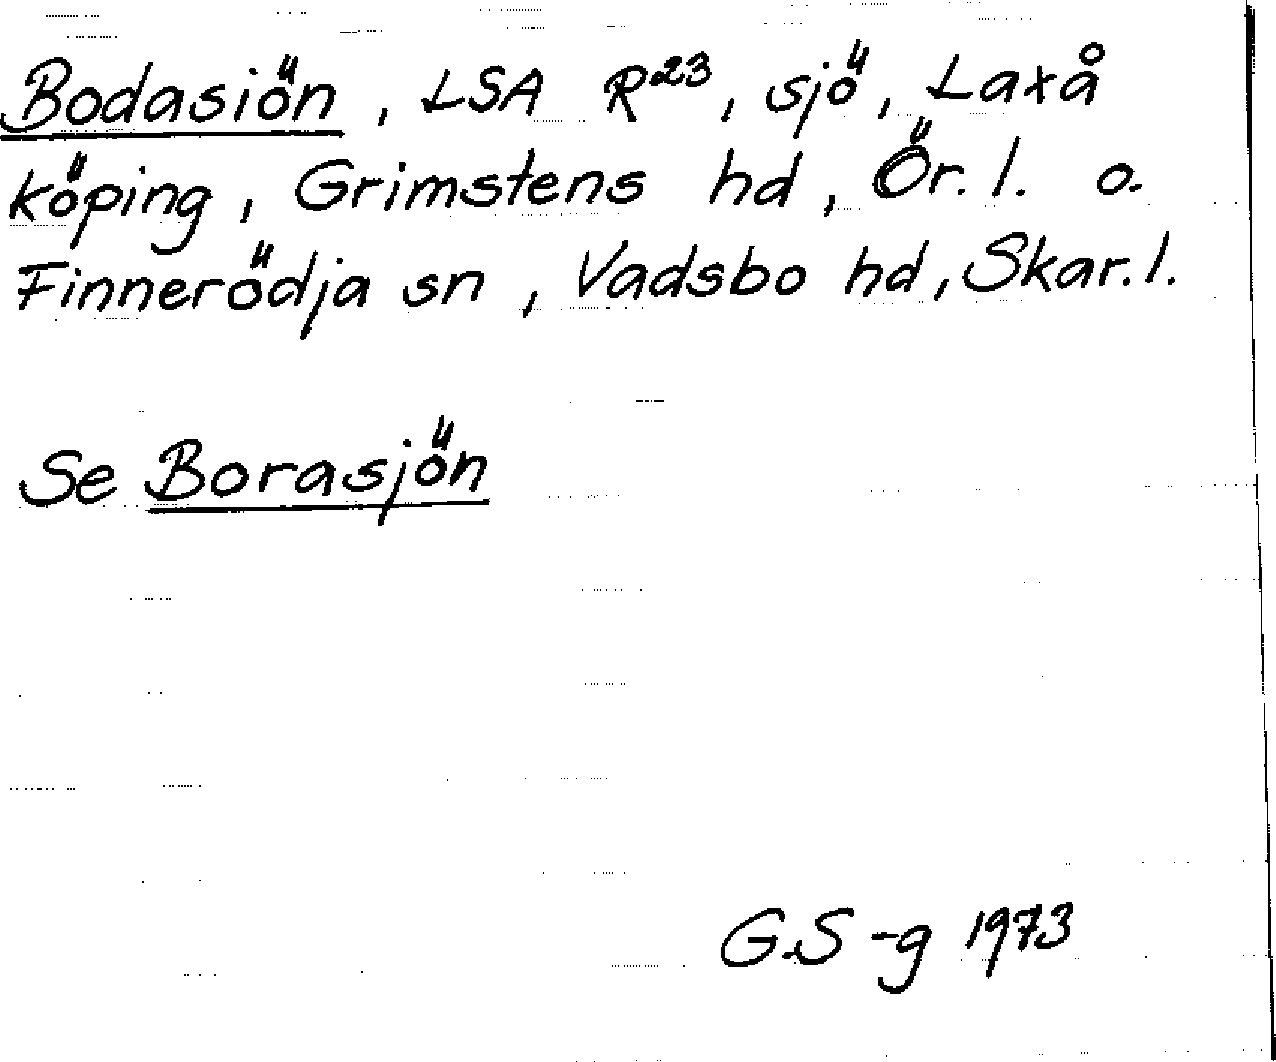 Bodasiön, LSA R23, sjö, Laxå
köping, Grimstens hd, Ör. l. o.
Finnerödja sn, Vadsbo hd, Skar. l.
Se Borasjön
G.S-g 1973